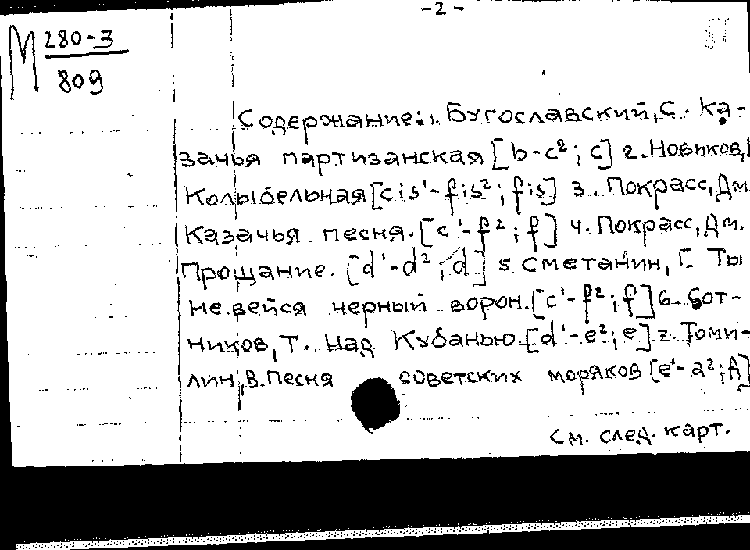 -2-
М 280-3
809
Содержание: 1. Бугославский, С. Ка-
зачья партизанская [b-c²; c] 2. Новиков,
Колыбельная [cis¹-fis²; fis] 3. Покрасс, Дм.
Казачья песня. [c¹-f²; f] 4. Покрасс, Дм.
Прощание. [d¹-d²; d] 5. Сметанин, Г. Ты
не вейся черный ворон. [c¹-f²; f] 6. Сот-
ников, Т. Над Кубанью. [d¹-e²; e] 7. Томи-
лин, В. Песня советских моряков [e¹-a²;
См. след. карт.